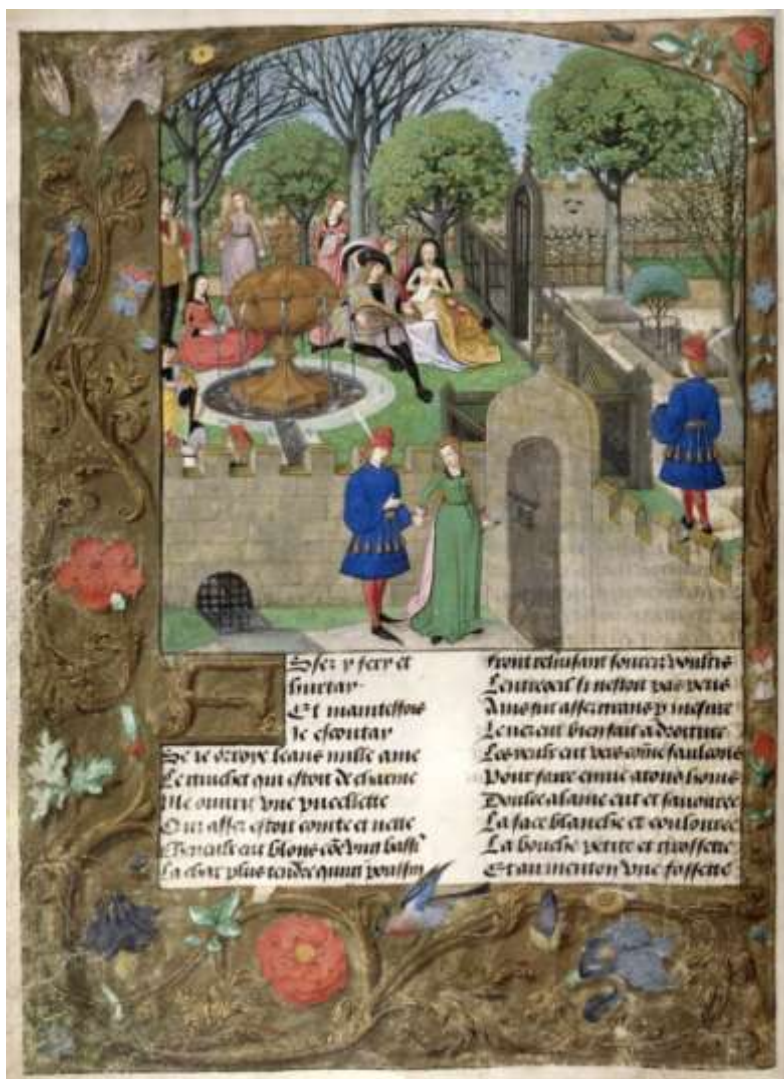 ASsez y fery et
hurtay
Et maintesfois
Je escoutay
Se ie orroye leans nulle ame
Le guichet qui estoit de charme
Me ouurit vne pucellette
Qui assez estoit cointe et nette
Cheueulx eut blons cõe vng bassĩ
La char plus tendre quũg poussin
Front reluisant sourcilz voultis
Lentreoeil si nestoit pas petis
Ains fut assez grans p mesure
Le nez eut bien fait a droiture
Les yeulx eut vers cõme faulcons
Pour faire enuie a tous homs
Doulce alaine eut et sauouree
La face blanche et coulouree
La bouche petite et grossette
Et au menton vne fossette